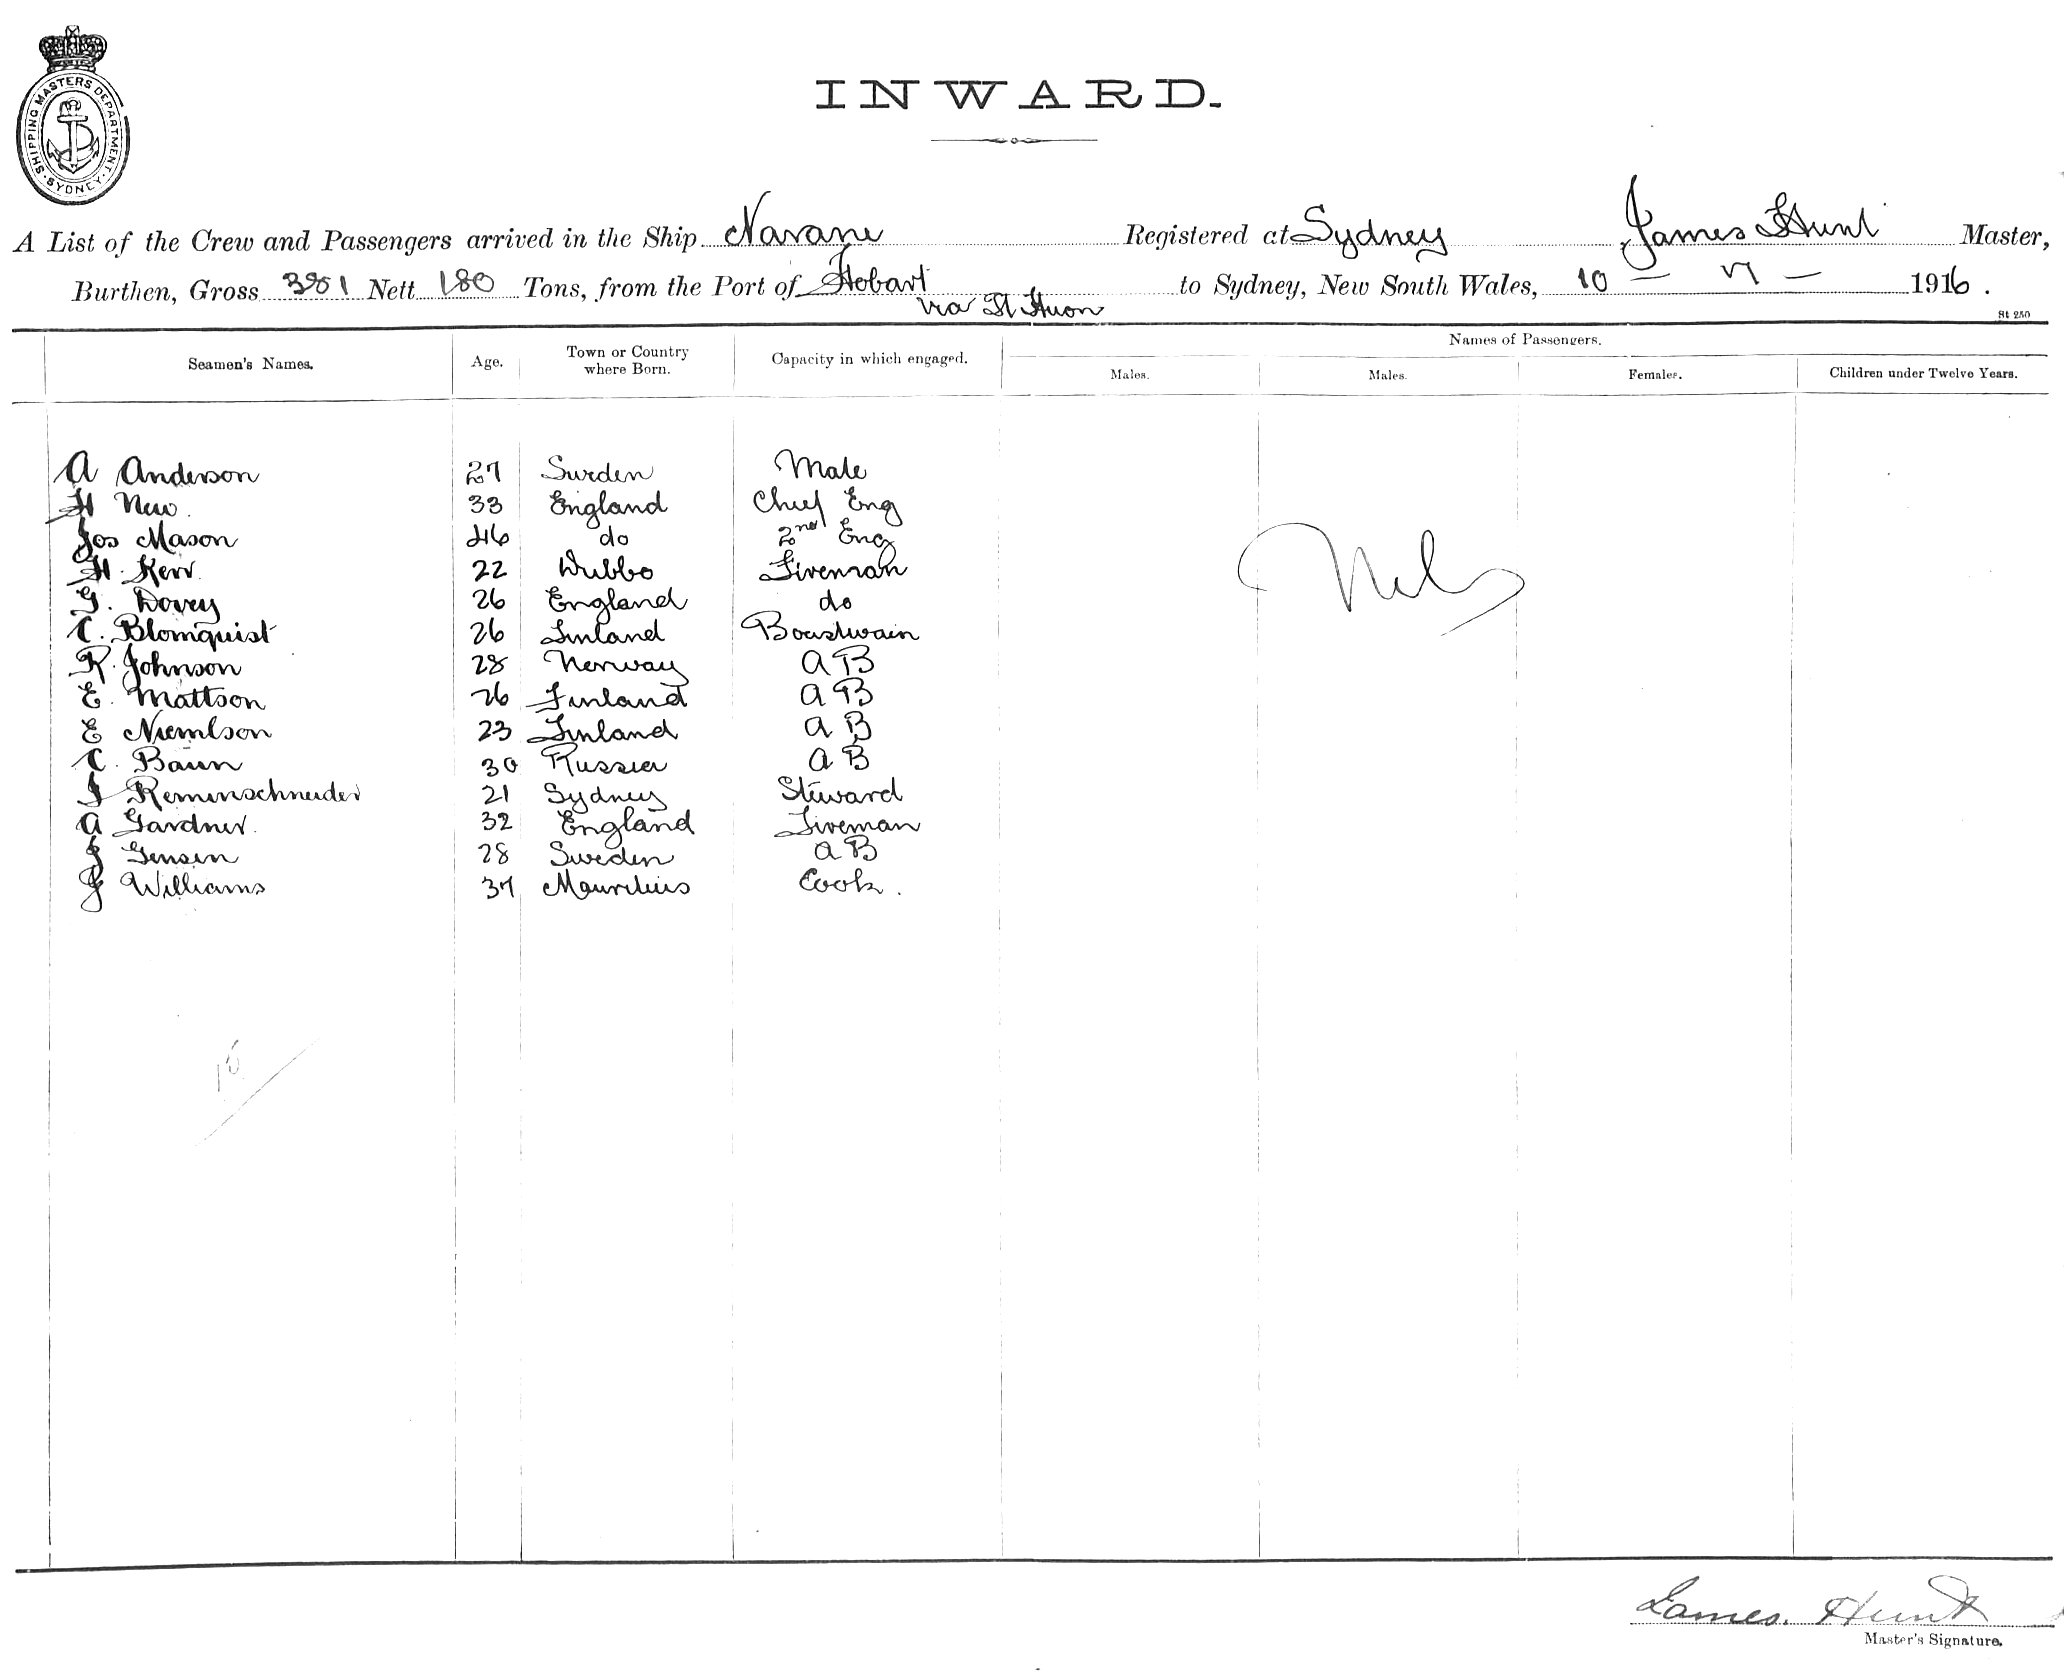 SHIPPING MASTERS DEPARTMENT
SYDNEY
INWARD.
A List of the Crew and Passengers arrived in the Ship Narani Registered at Sydney James Hunt Master,
Burthen, Gross 381 Nett 180 Tons, from the Port of Hobart to Sydney, New South Wales, 10 - 7 - 1916.
via Pt Huon
St 250
Names of Passengers.
Seamen's Names. Age. Town or Country where Born. Capacity in which engaged. Males. Males. Females. Children under Twelve Years.
A Anderson 27 Sweden Mate
H New 33 England Chief Eng
Jos Mason 46 do 2nd Eng
H. Kerr 22 Dubbo Fireman
G. Dovey 26 England do
C. Blomquist 26 Finland Boastwain
R. Johnson 28 Norway A B
E. Mattson 26 Finland A B
E 23 Finland A B
C. Baun 30 Russia A B
Remenschneider 21 Sydney Steward
A Gardner 32 England Fireman
J Gensen 28 Sweden A B
J Williams 37 Mauritius Cook.
Nil
James Hunt
Master's Signature.